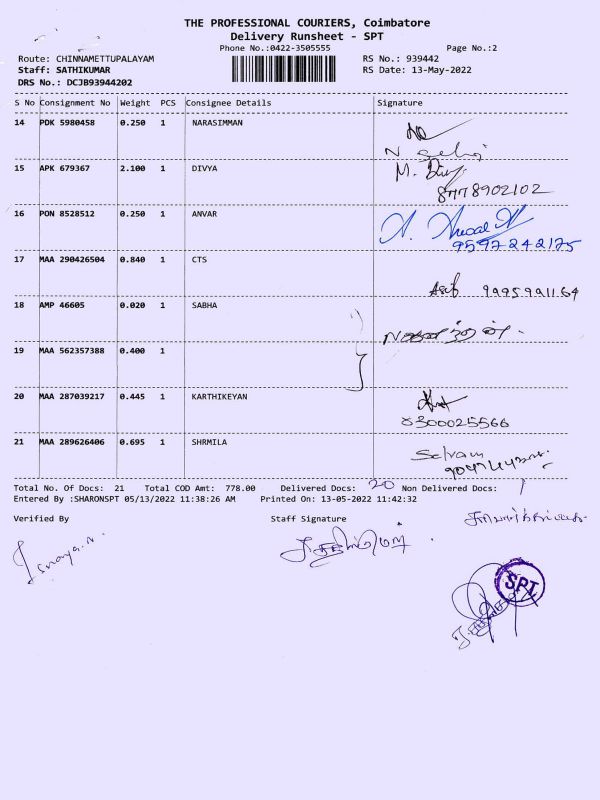 THE PROFESSIONAL COURIERS, Coimbatore
Delivery Runsheet - SPT
Phone No.:0422-3505555 Page No.:2
Route: CHINNAMETTUPALAYAM RS No.: 939442
Staff: SATHIKUMAR RS Date: 13-May-2022
DRS No.: DCJB93944202
S No Consignment No Weight PCS Consignee Details Signature
14 PDK 5980458 0.250 1 NARASIMMAN
15 APK 679367 2.100 1 DIVYA
M. Divy
8778902102
16 PON 8528512 0.250 1 ANVAR
9597242175
17 MAA 290426504 0.840 1 CTS
Asif 9995991164
18 AMP 46605 0.020 1 SABHA
19 MAA 562357388 0.400 1
20 MAA 287039217 0.445 1 KARTHIKEYAN
8300025566
21 MAA 289626406 0.695 1 SHRMILA
Selvam
Total No. Of Docs: 21 Total COD Amt: 778.00 Delivered Docs: 20 Non Delivered Docs: 1
Entered By :SHARONSPT 05/13/2022 11:38:26 AM Printed On: 13-05-2022 11:42:32
Verified By Staff Signature
SPT